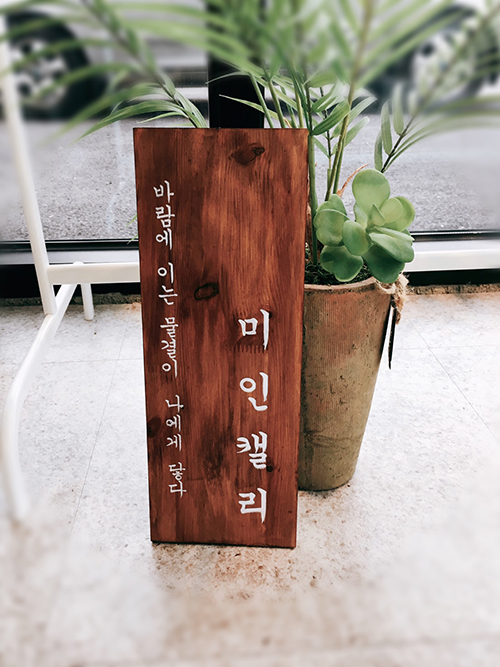 바람에 이는 물결이 나에게 닿다
미인캘리